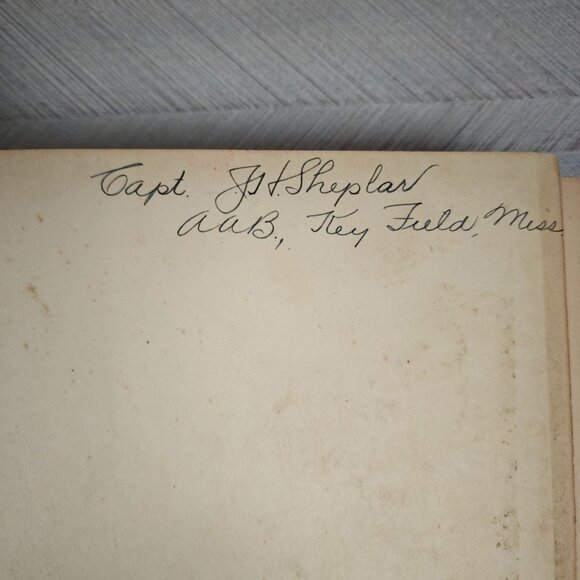 Capt. J.H. Sheplar
AAB., Key Field, Miss